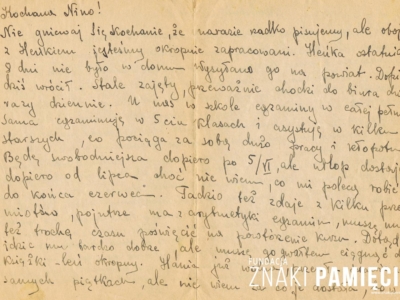 Kochana Nino!
Nie gniewaj się Kochanie, że narazie rzadko piszemy, ale oboj
z Heńkiem jesteśmy okropnie zapracowani. Heńka ostatnio
8 dni nie było w domu Wysyłano go na powiat. Dopi
dziś wrócił. Stale zajęty, przeważnie chodzi do biura dwa
razy dziennie. U nas w szkole egzaminy w całej pełni
Sama egzaminuję w 5ciu klasach i asystuję w kilku
starszych, co pociąga za sobą dużo pracy i kłopotów
Będę swobodniejsza dopiero po 5/VI, ale urlop dostaję
dopiero od lipca choć nie wiem, co mi polecą robić
do końca czerwca. Tadzio też zdaje z kilku prze
miotów, pojutrze ma z arytmetyki egzamin, muszę mu
też trochę czasu poświęcić na powtórzenie kursu. Dotąd
idzie mu bardzo dobrze ale muszę go ciągnąć do
książki - leń okropny. Hania już
samych piątkach, ale nie wiem co dostała
FUNDACJA
ZNAKI PAMIĘCI